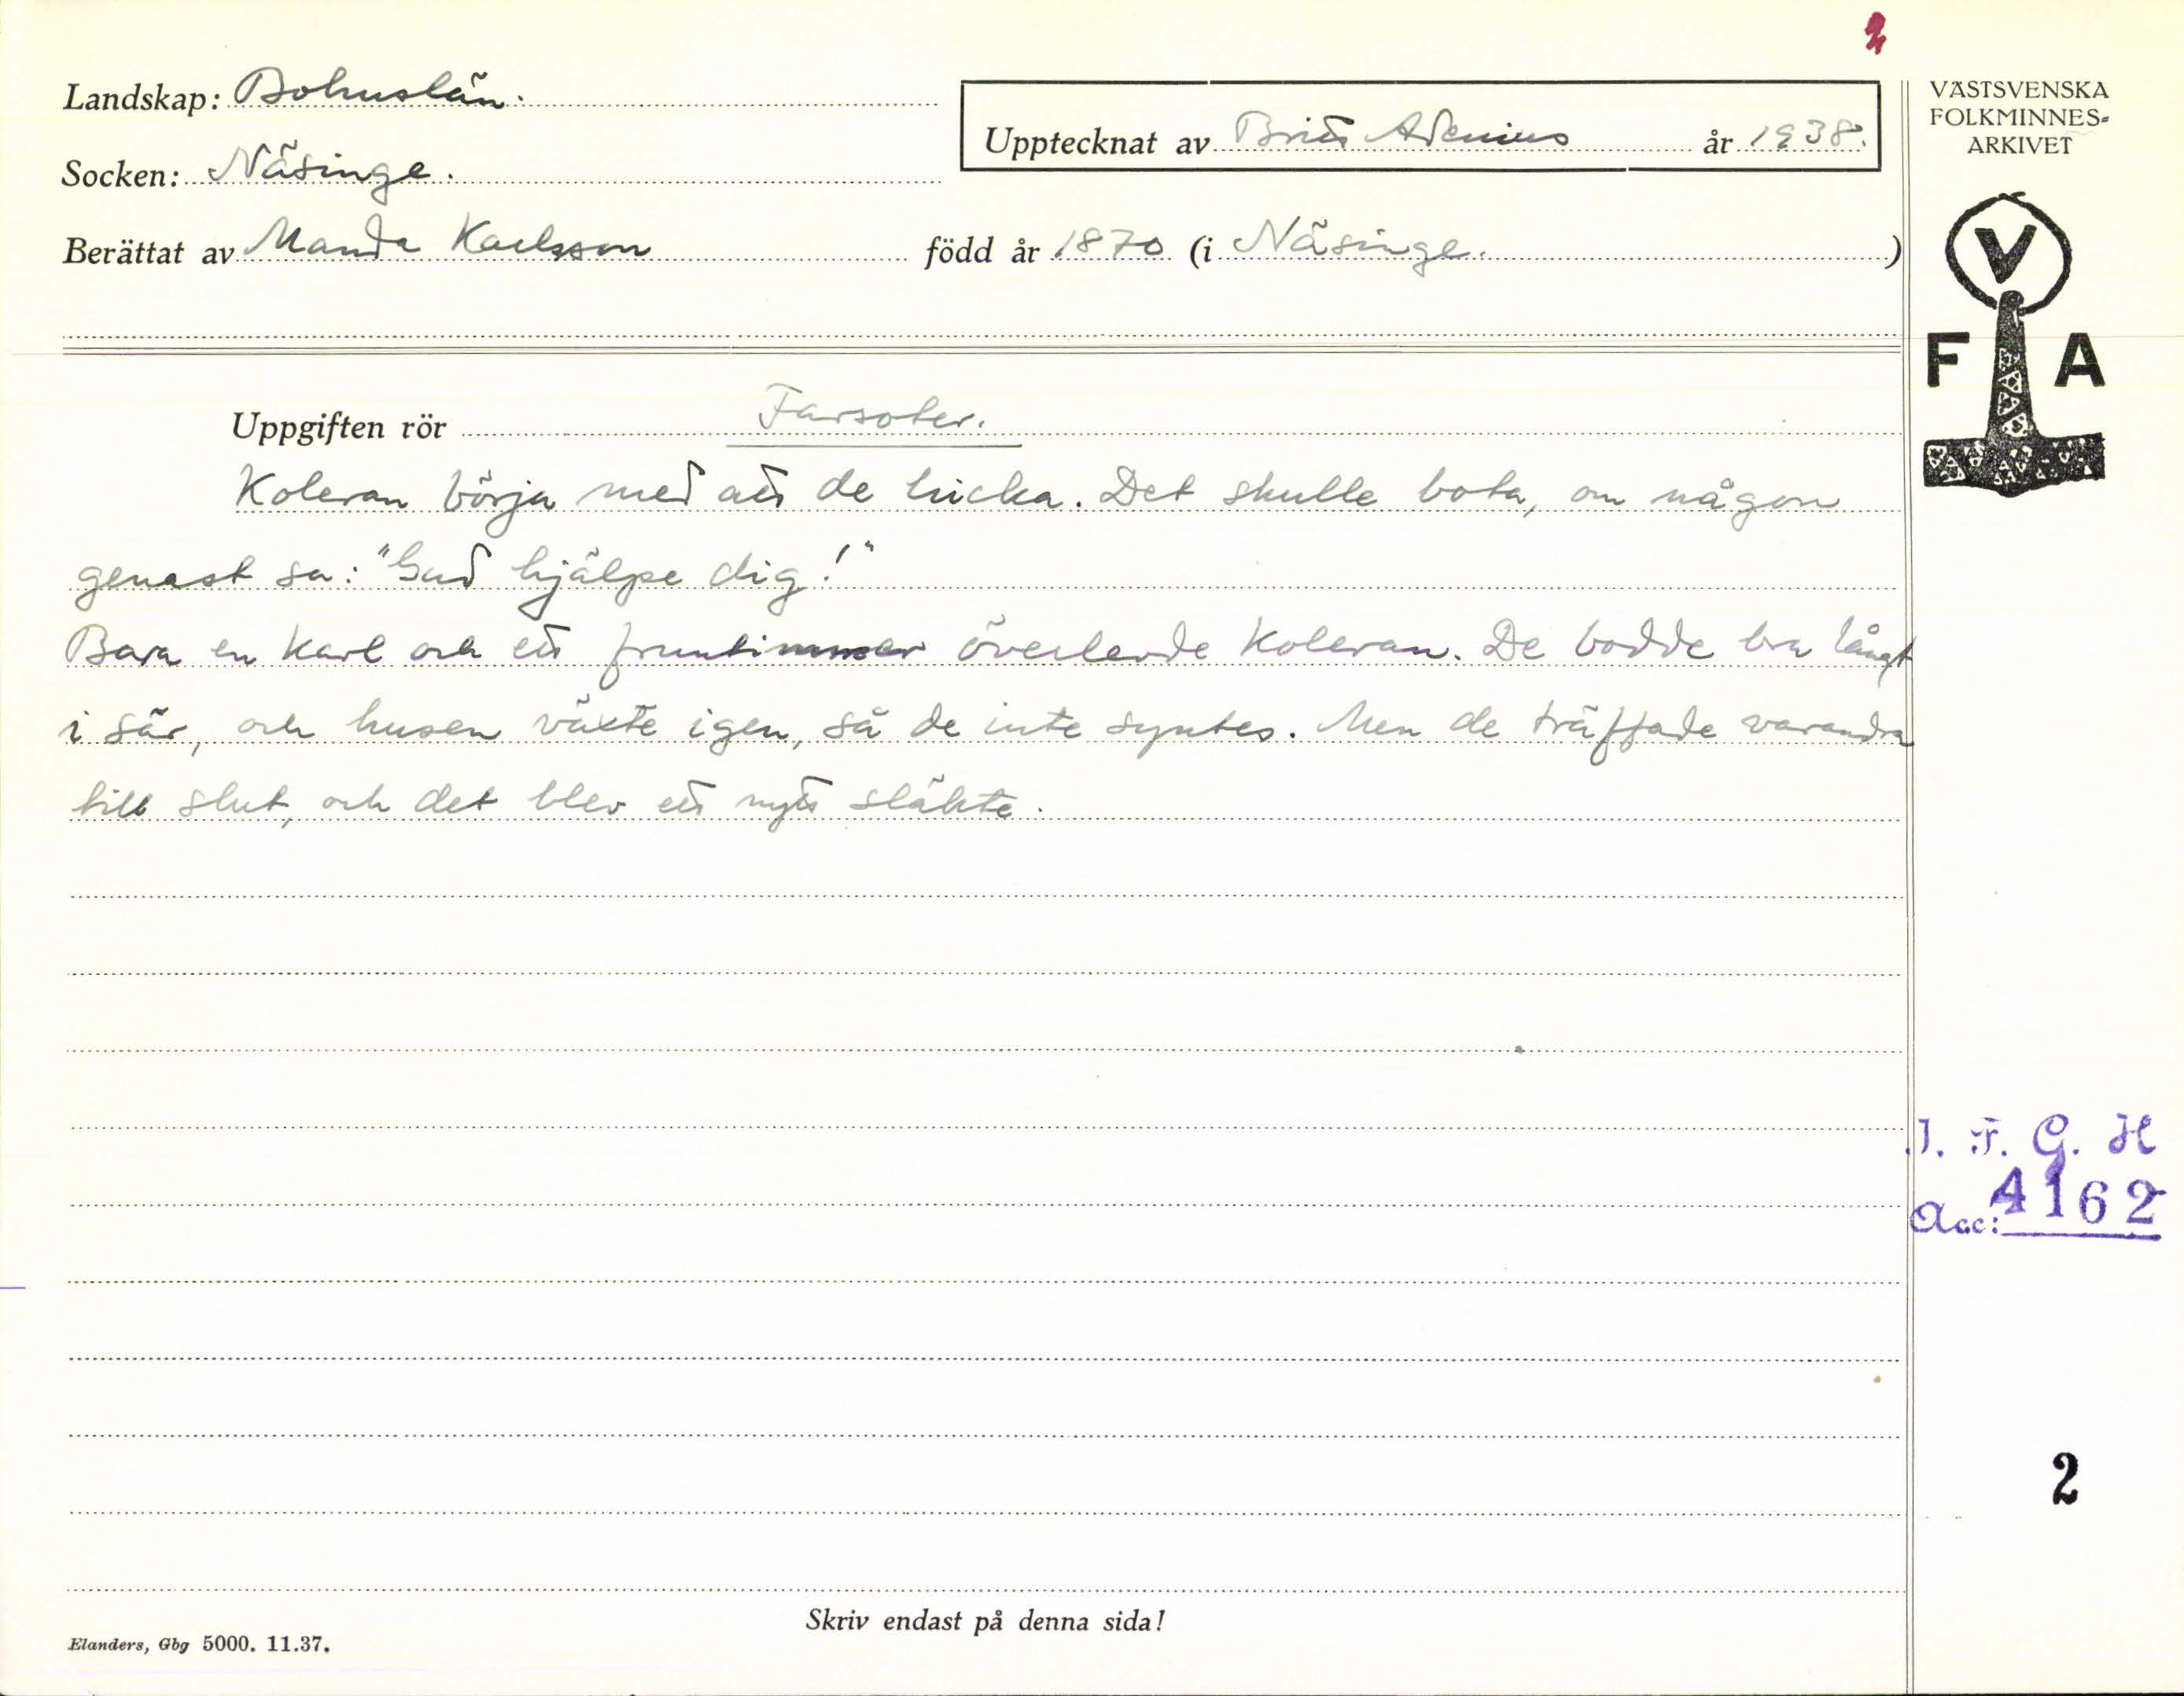 2
Landskap: Bohuslän.
Socken: Näsinge.
Upptecknat av Britt Adenius år 1938.
Berättat av Manda Karlsson född år 1870 (i Näsinge. )
VÄSTSVENSKA
FOLKMINNES-
ARKIVET
V
F A
Uppgiften rör Farsoter.
Koleran börja med att de hicka. Det skulle bota, om någon
genast sa: "Gud hjälpe dig!"
Bara en karl och ett fruntimmer överlevde koleran. De bodde bra långt
i sär, och husen växte igen, så de inte syntes. Men de träffade varandra
till slut, och det blev ett nytt släkte.
I. F. G. H
Acc: 4162
2
Skriv endast på denna sida!
Elanders, Gbg 5000. 11.37.